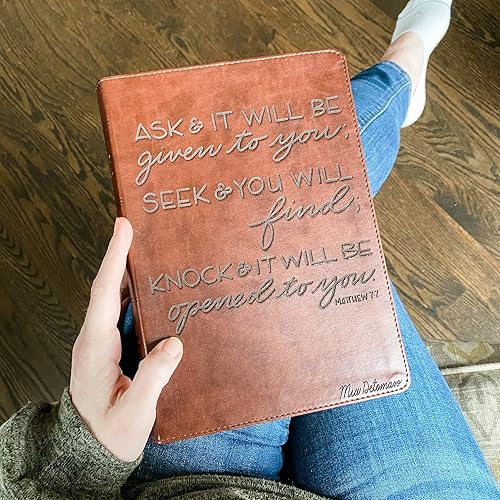 ASK & IT WILL BE
given to you;
SEEK & YOU WILL
find;
KNOCK & IT WILL BE
opened to you.
MATTHEW 7:7
Mia Detomaso